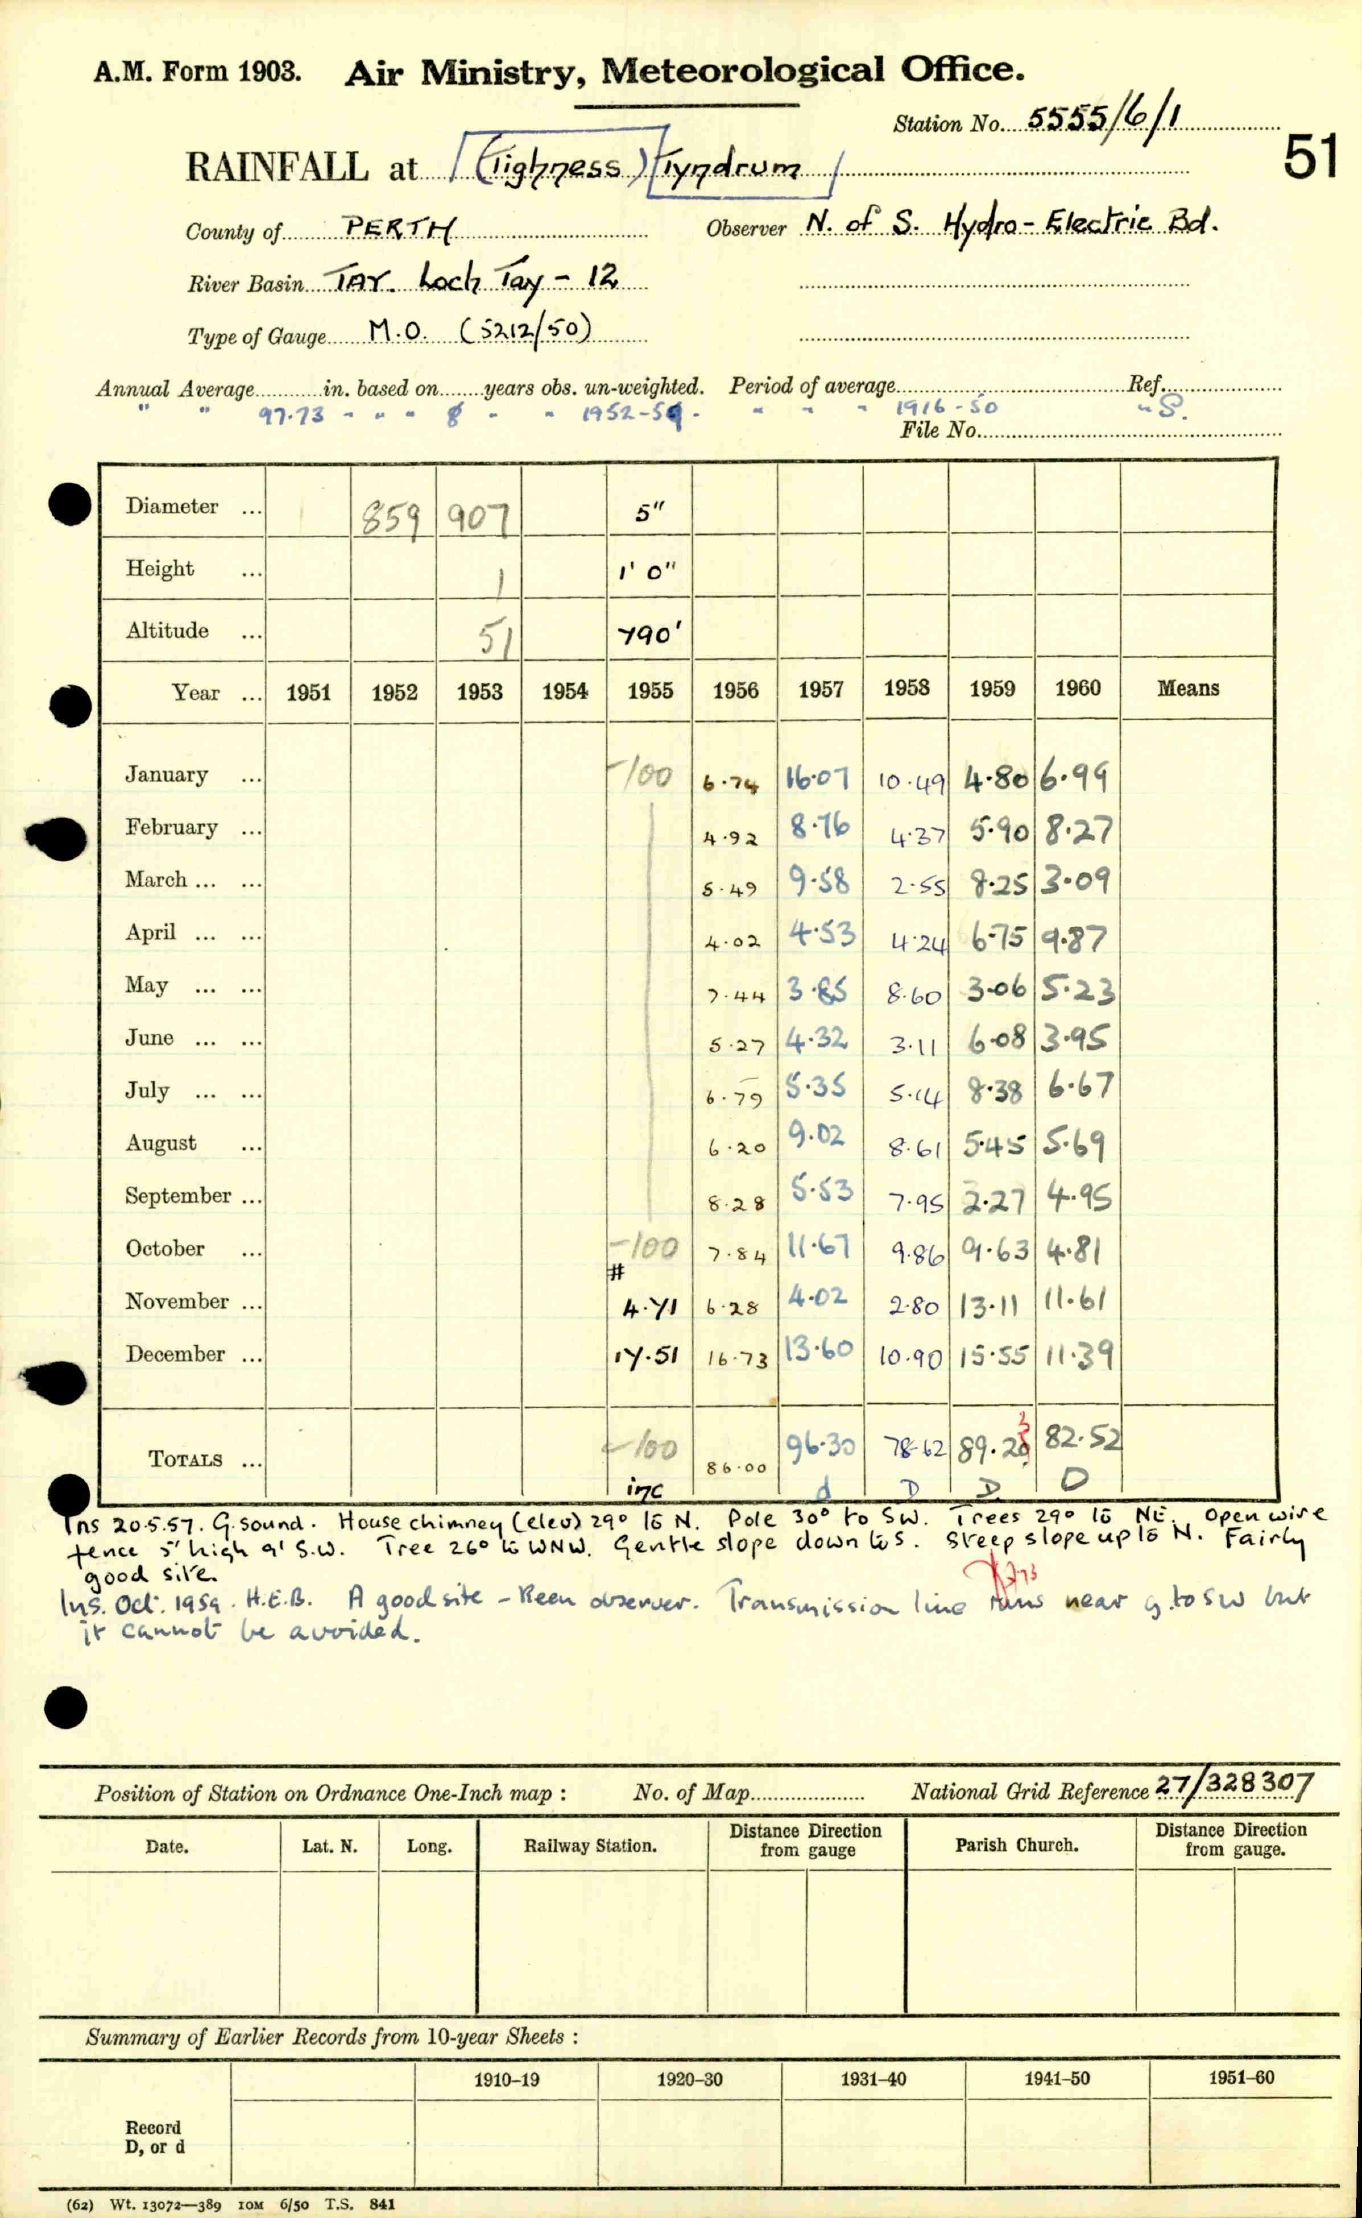 A.M. Form 1903. Air Ministry, Meteorological Office.
Station No. 5555/6/1
51
RAINFALL at (Tighness) Tyndrum
County of PERTH Observer N. of S. Hydro-Electric Bd.
River Basin TAY. Loch Tay - 12
Type of Gauge M.O. (5212/50)
Annual Average in. based on years obs. un-weighted. Period of average Ref.
" " 97.73 - " " 8 - - 1952-59 - " - - 1916-50 " S.
File No.
Diameter ... 859 907 5"
Height ... 1 1' 0"
Altitude ... 51 790'
Year ... 1951 1952 1953 1954 1955 1956 1957 1958 1959 1960 Means
January ... -100 6.74 16.07 10.49 4.80 6.99
February ... 4.92 8.76 4.37 5.90 8.27
March ... ... 5.49 9.58 2.55 8.25 3.09
April ... ... 4.02 4.53 4.24 6.75 9.87
May ... ... 7.44 3.85 8.60 3.06 5.23
June ... ... 5.27 4.32 3.11 6.08 3.95
July ... ... 6.79 5.35 5.14 8.38 6.67
August ... 6.20 9.02 8.61 5.45 5.69
September ... 8.28 5.53 7.95 2.27 4.95
October ... -100 7.84 11.67 9.86 9.63 4.81
#
November ... 4.71 6.28 4.02 2.80 13.11 11.61
December ... 17.51 16.73 13.60 10.90 15.55 11.39
TOTALS ... -100 86.00 96.30 78.62 89.23 82.52
inc d D D D
Ins 20.5.57. G. sound. House chimney (elev) 29° to N. Pole 30° to SW. Trees 29° to NE. Open wire
fence 5' high 9' S.W. Tree 26° to WNW. Gentle slope down to S. Steep slope up to N. Fairly
good site.
Ins. Oct. 1959. H.E.B. A good site - Keen observer. Transmission line runs near g. to SW but
it cannot be avoided.
Position of Station on Ordnance One-Inch map : No. of Map National Grid Reference 27/328307
Date. Lat. N. Long. Railway Station. Distance Direction from gauge Parish Church. Distance Direction from gauge.
Summary of Earlier Records from 10-year Sheets :
1910–19 1920–30 1931–40 1941–50 1951–60
Record
D, or d
(62) Wt. 13072—389 10M 6/50 T.S. 841